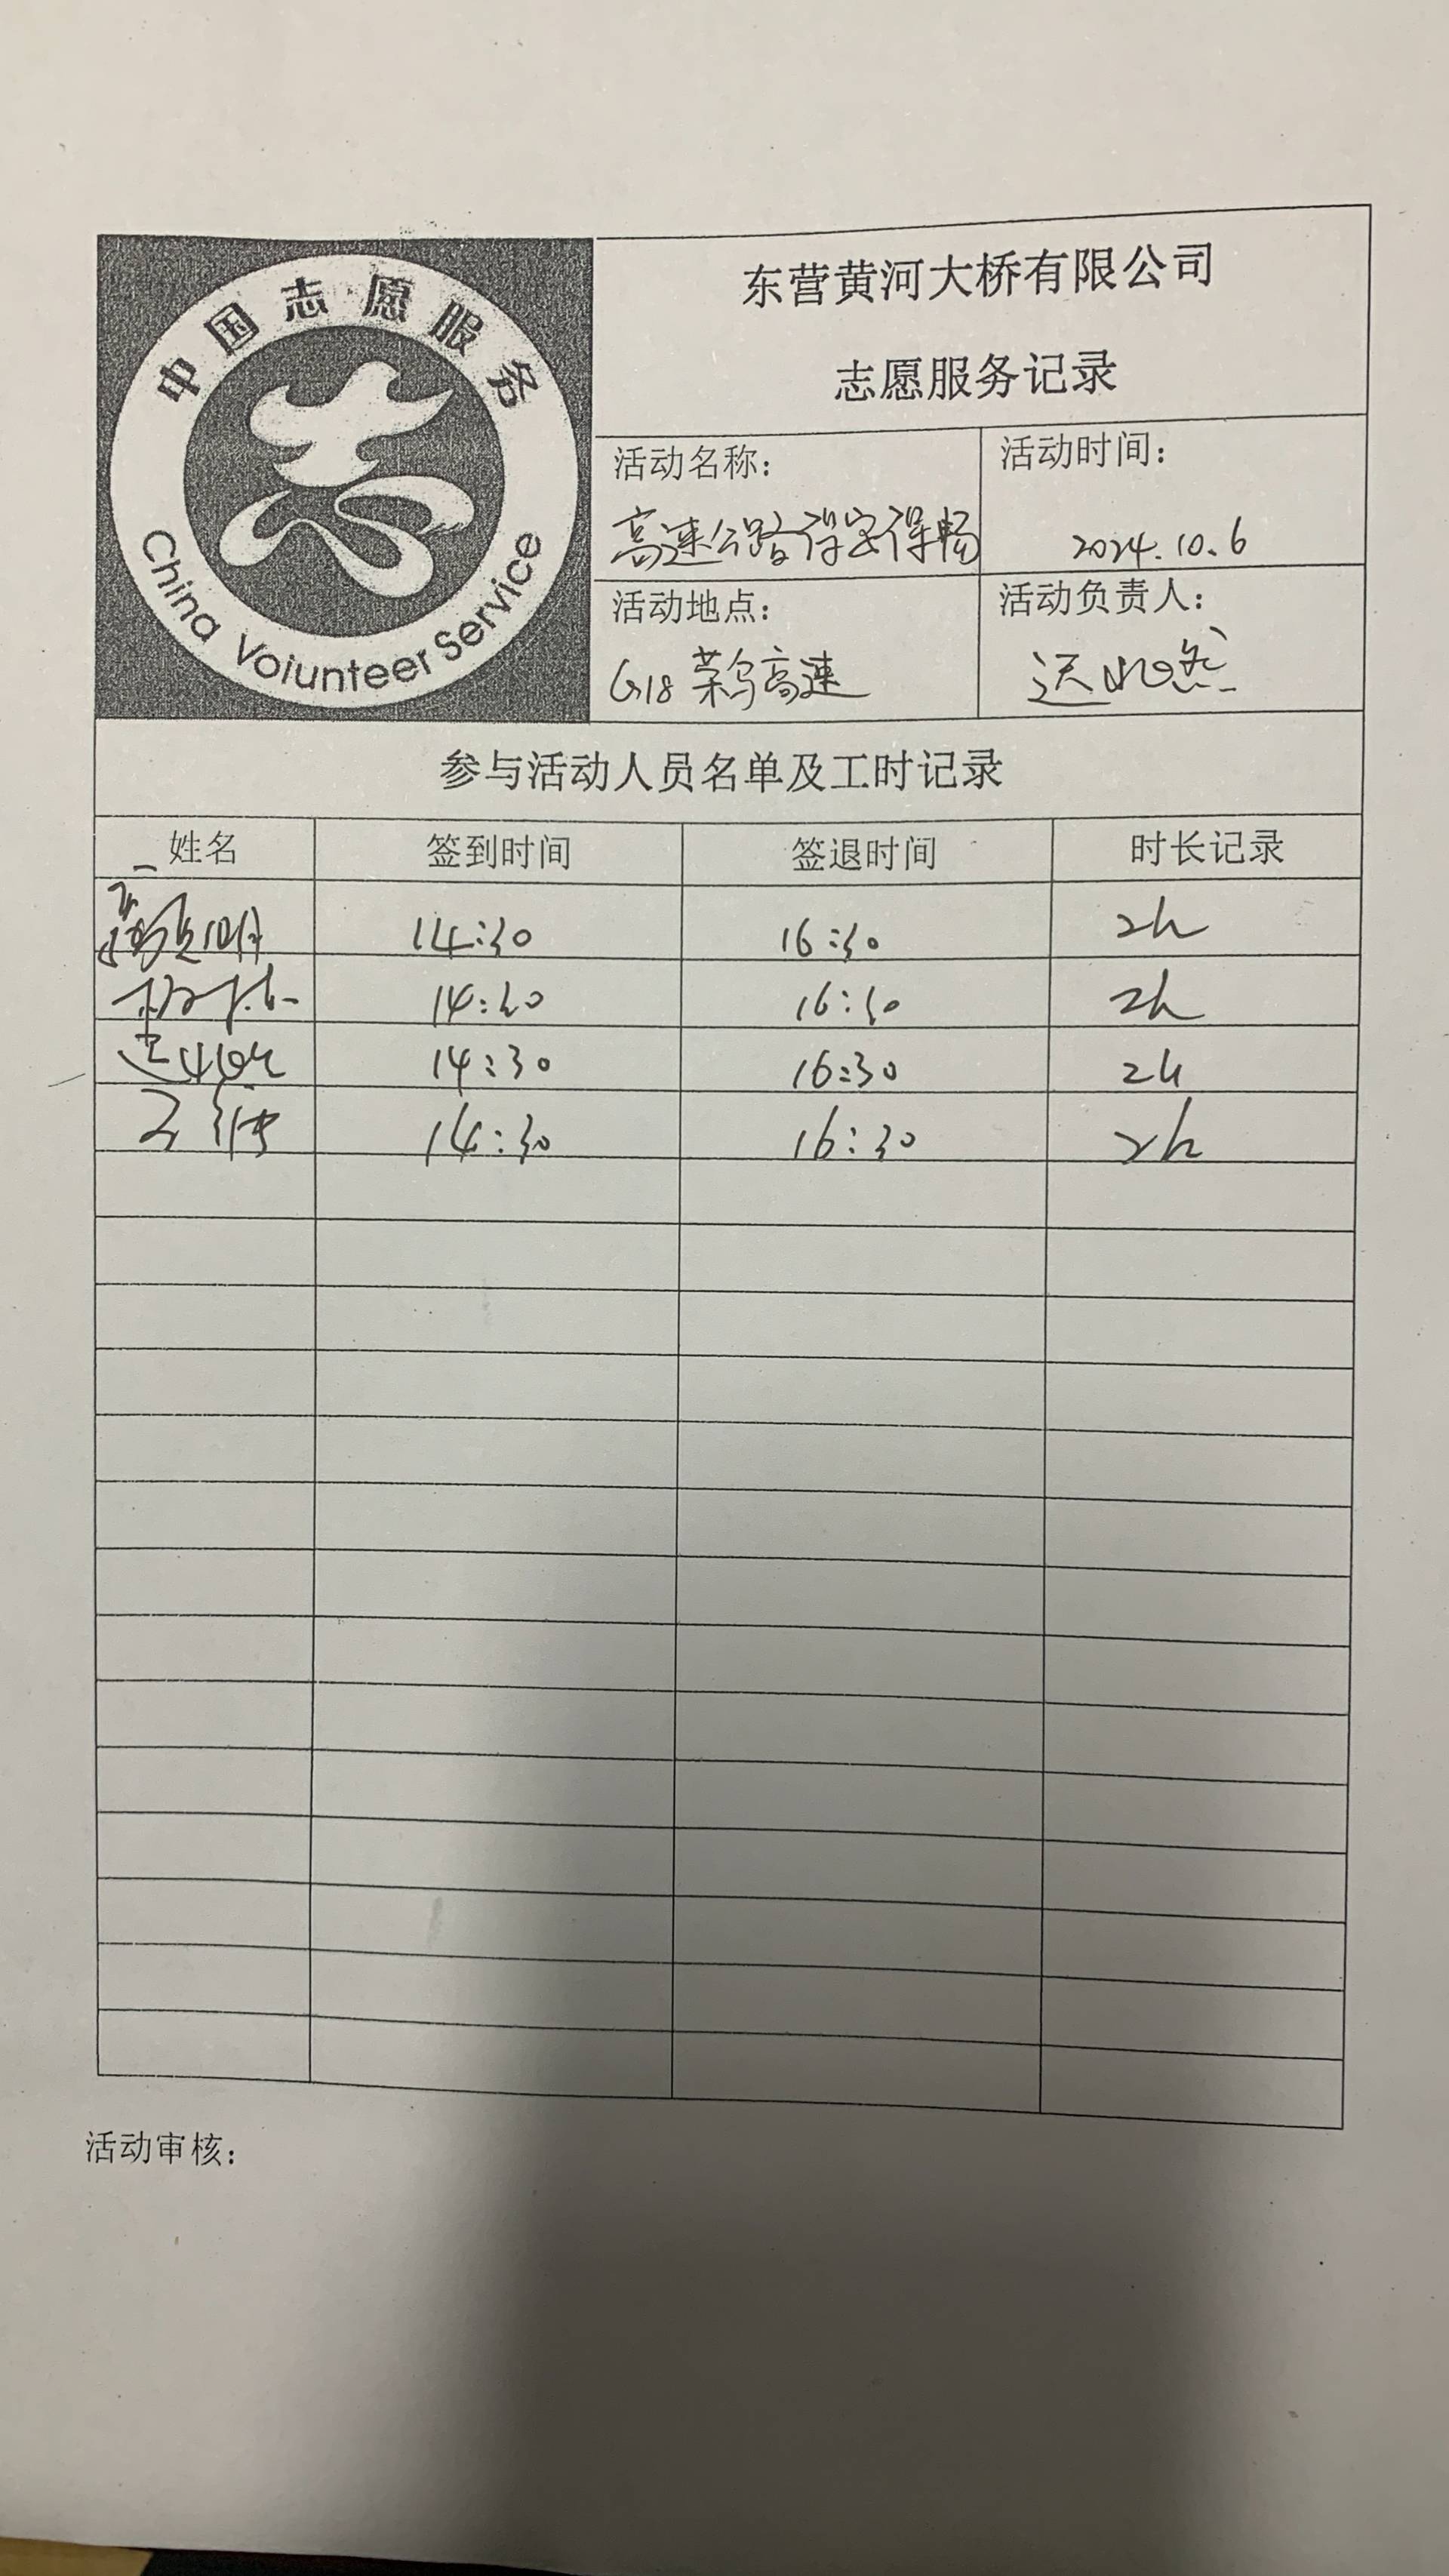 中国志愿服务
China Voiunteer Service
东营黄河大桥有限公司
志愿服务记录
活动名称：
活动时间：
高速公路保安保畅
2024.10.6
活动地点：
活动负责人：
G18 荣乌高速
参与活动人员名单及工时记录
姓名 签到时间 签退时间 时长记录
14:30 16:30 2h
14:30 16:30 2h
14:30 16:30 2h
14:30 16:30 2h
活动审核：